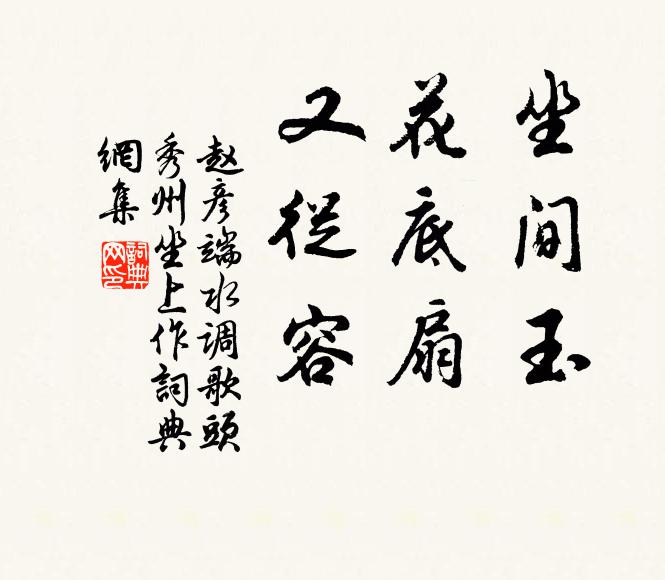 坐间玉
花底扇
又從容
赵彦端水调歌頭
秀州坐上作詞典
網集
詞典
网印